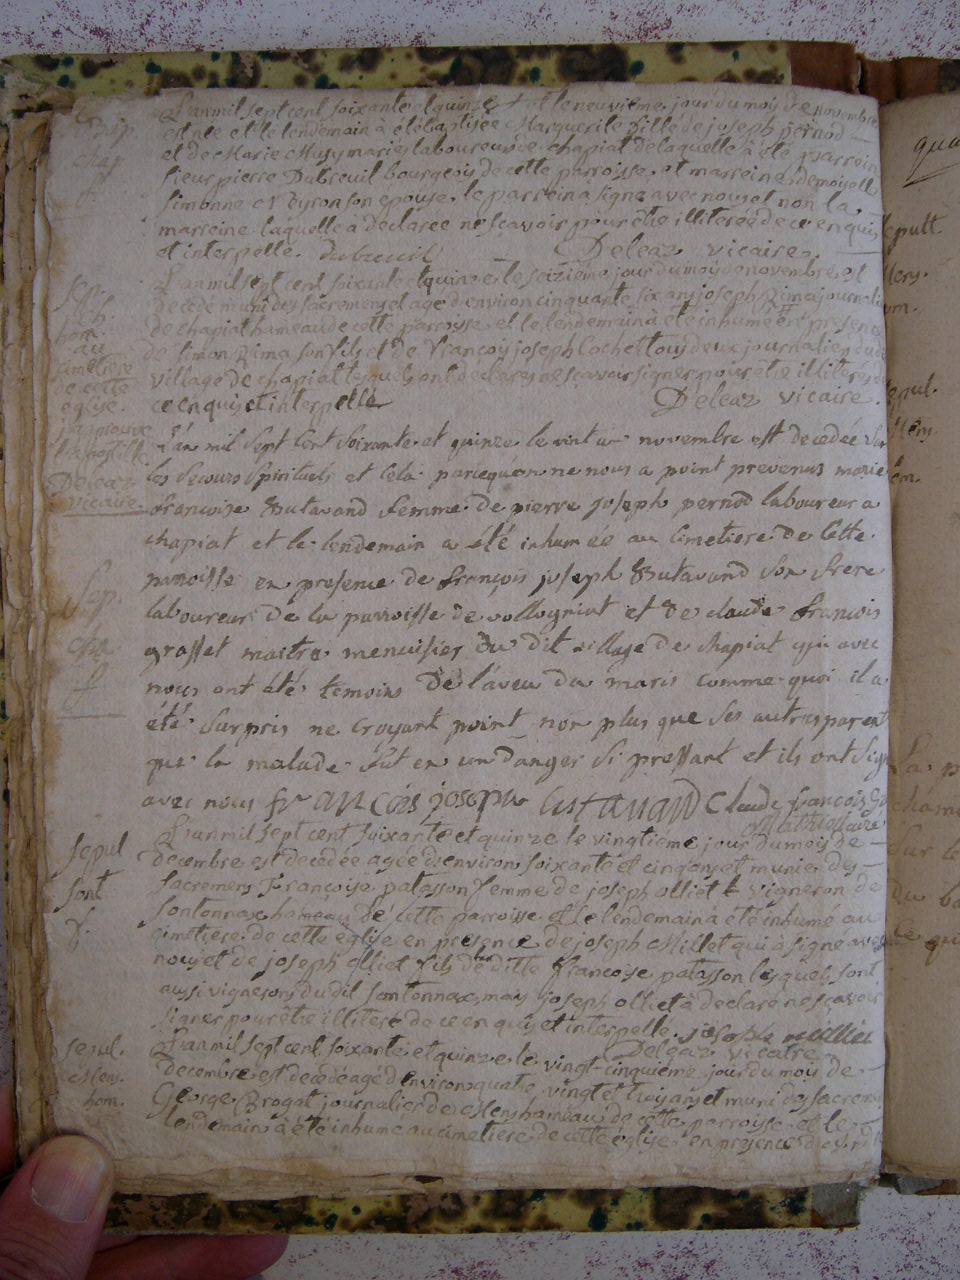 Bap.
chap.
f.
L'an mil sept cent soixante et quinze et le neuvieme jour du mois de novembre
est née et le lendemain à été baptisée Marguerite fille de joseph pernod
et de Marie Musy mariés laboureurs de chapiat de laquelle à été parrein
sieur pierre Dubreuil bourgeois de cette parroisse et marreine demoiselle
simonne son epouse, le parrein a signé avec nous et non la
marreine laquelle à déclarée ne scavoir pour être illiterée de ce enquis
et interpellé. dubreuil Deleaz vicaire.
sep.
ch.
hom.
au
cimetiere
de cette
eglise.
j'approuve
l'apostille
Deleaz
vicaire
L'an mil sept cent soixante et quinze le seizieme jour du moy de novembre est
decedé muni des sacremens et agé d'environ cinquante six ans joseph Rima journalier
de chapiat hameau de cette parroisse et le lendemain à été inhumé en presence
de simon Rima son fils et de françois joseph Cochet tous deux journaliers dudit
village de chapiat lesquels ont declarés ne scavoir signer pour être illiterés de
ce enquis et interpellé Deleaz vicaire.
sep.
cha.
f
L'an mil sept cent soixante et quinze le vint u novembre est decedée sur
les secours spirituels et cela parcequ'on ne nous a point prevenus marie
francoise Butavand femme de pierre joseph pernod laboureur a
chapiat et le lendemain a été inhumée au cimetiere de cette
paroisse en presence de françois joseph Butavand son frere
laboureur de la parroisse de vollogniat et de claude françois
grosset maitre menuisier du dit village de chapiat qui avec
nous ont été temoins de l'aveu du maris comme quoi il a
été surpris ne croyant point non plus que ses autres parent
que la malade fut en un danger si pressant et ils ont signé
avec nous francois joseph butavand Claude francois
sepul
sont
f.
L'an mil sept cent soixante et quinze le vingtiéme jour du mois de
decembre est decedée agée d'environ soixante et cinq ans et munie des
sacremens Françoise patasson femme de joseph olliet vigneron de
sontonnax hameau de cette parroisse et le lendemain à été inhumé au
cimetiere de cette eglise en presence de joseph Millet qui à signé avec
nous et de joseph olliet fils de ditte françoise patasson lesquels sont
aussi vignerons du dit sontonnax, mais joseph olliet à declaré ne sçavoir
signer pour être illiteré de ce enquis et interpellé. joseph millet
Deleaz vicaire
sepul.
Mens.
hom.
L'an mil sept cent soixante et quinze le vingt cinquieme jour du mois de
decembre est decedé agé d'environ quatre vingt et trois ans et muni des sacremens
George Brogat journalier de Mens hameau de cette parroisse et le
lendemain à été inhumé au cimetiere de cette eglise en presence de